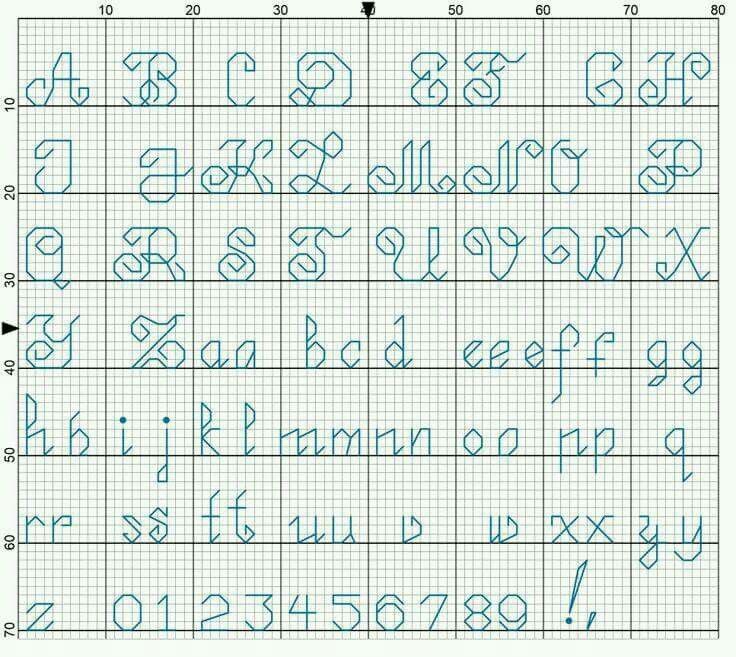 10 20 30 40 50 60 70 80
A B C D E F G H
10
I J K L M N O P
20
Q R S T U V W X
30
Y Z a a b c d e e e f f g g
40
h h i j k l m m n n o o p p q
50
r r s s t t u u v w x x y y
60
z 0 1 2 3 4 5 6 7 8 9 ! ,
70